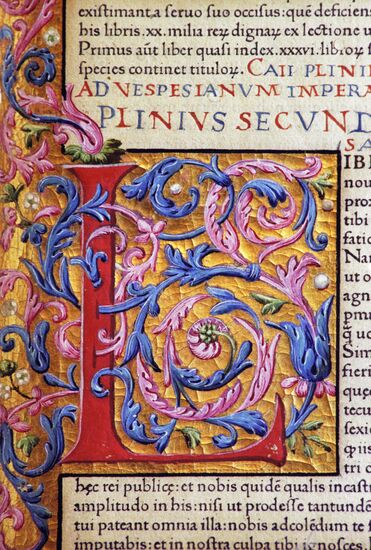 existimant,a seruo suo occisus:quē deficien
bis libris.xx.milia reꝝ dignaꝝ ex lectione u
Primus aūt liber quasi index.xxxvi.libroꝝ ſ
species continet tituloꝝ. CAII PLINI
AD VESPESIANVM IMPERA
PLINIVS SECVND
SA
L
IBI
nou
prox
tibi
fatio
Nar
ut o
agn
pma
Sim
fieri
que
tecu
sexi
tri c
hęc rei publicę:et nobis quidē qualis incastr
amplitudo in his:nisi ut prodesse tantundē
tui pateant omnia illa:nobis ad colēdum te f
imputabis:et in nostra culpa tibi ignosces.